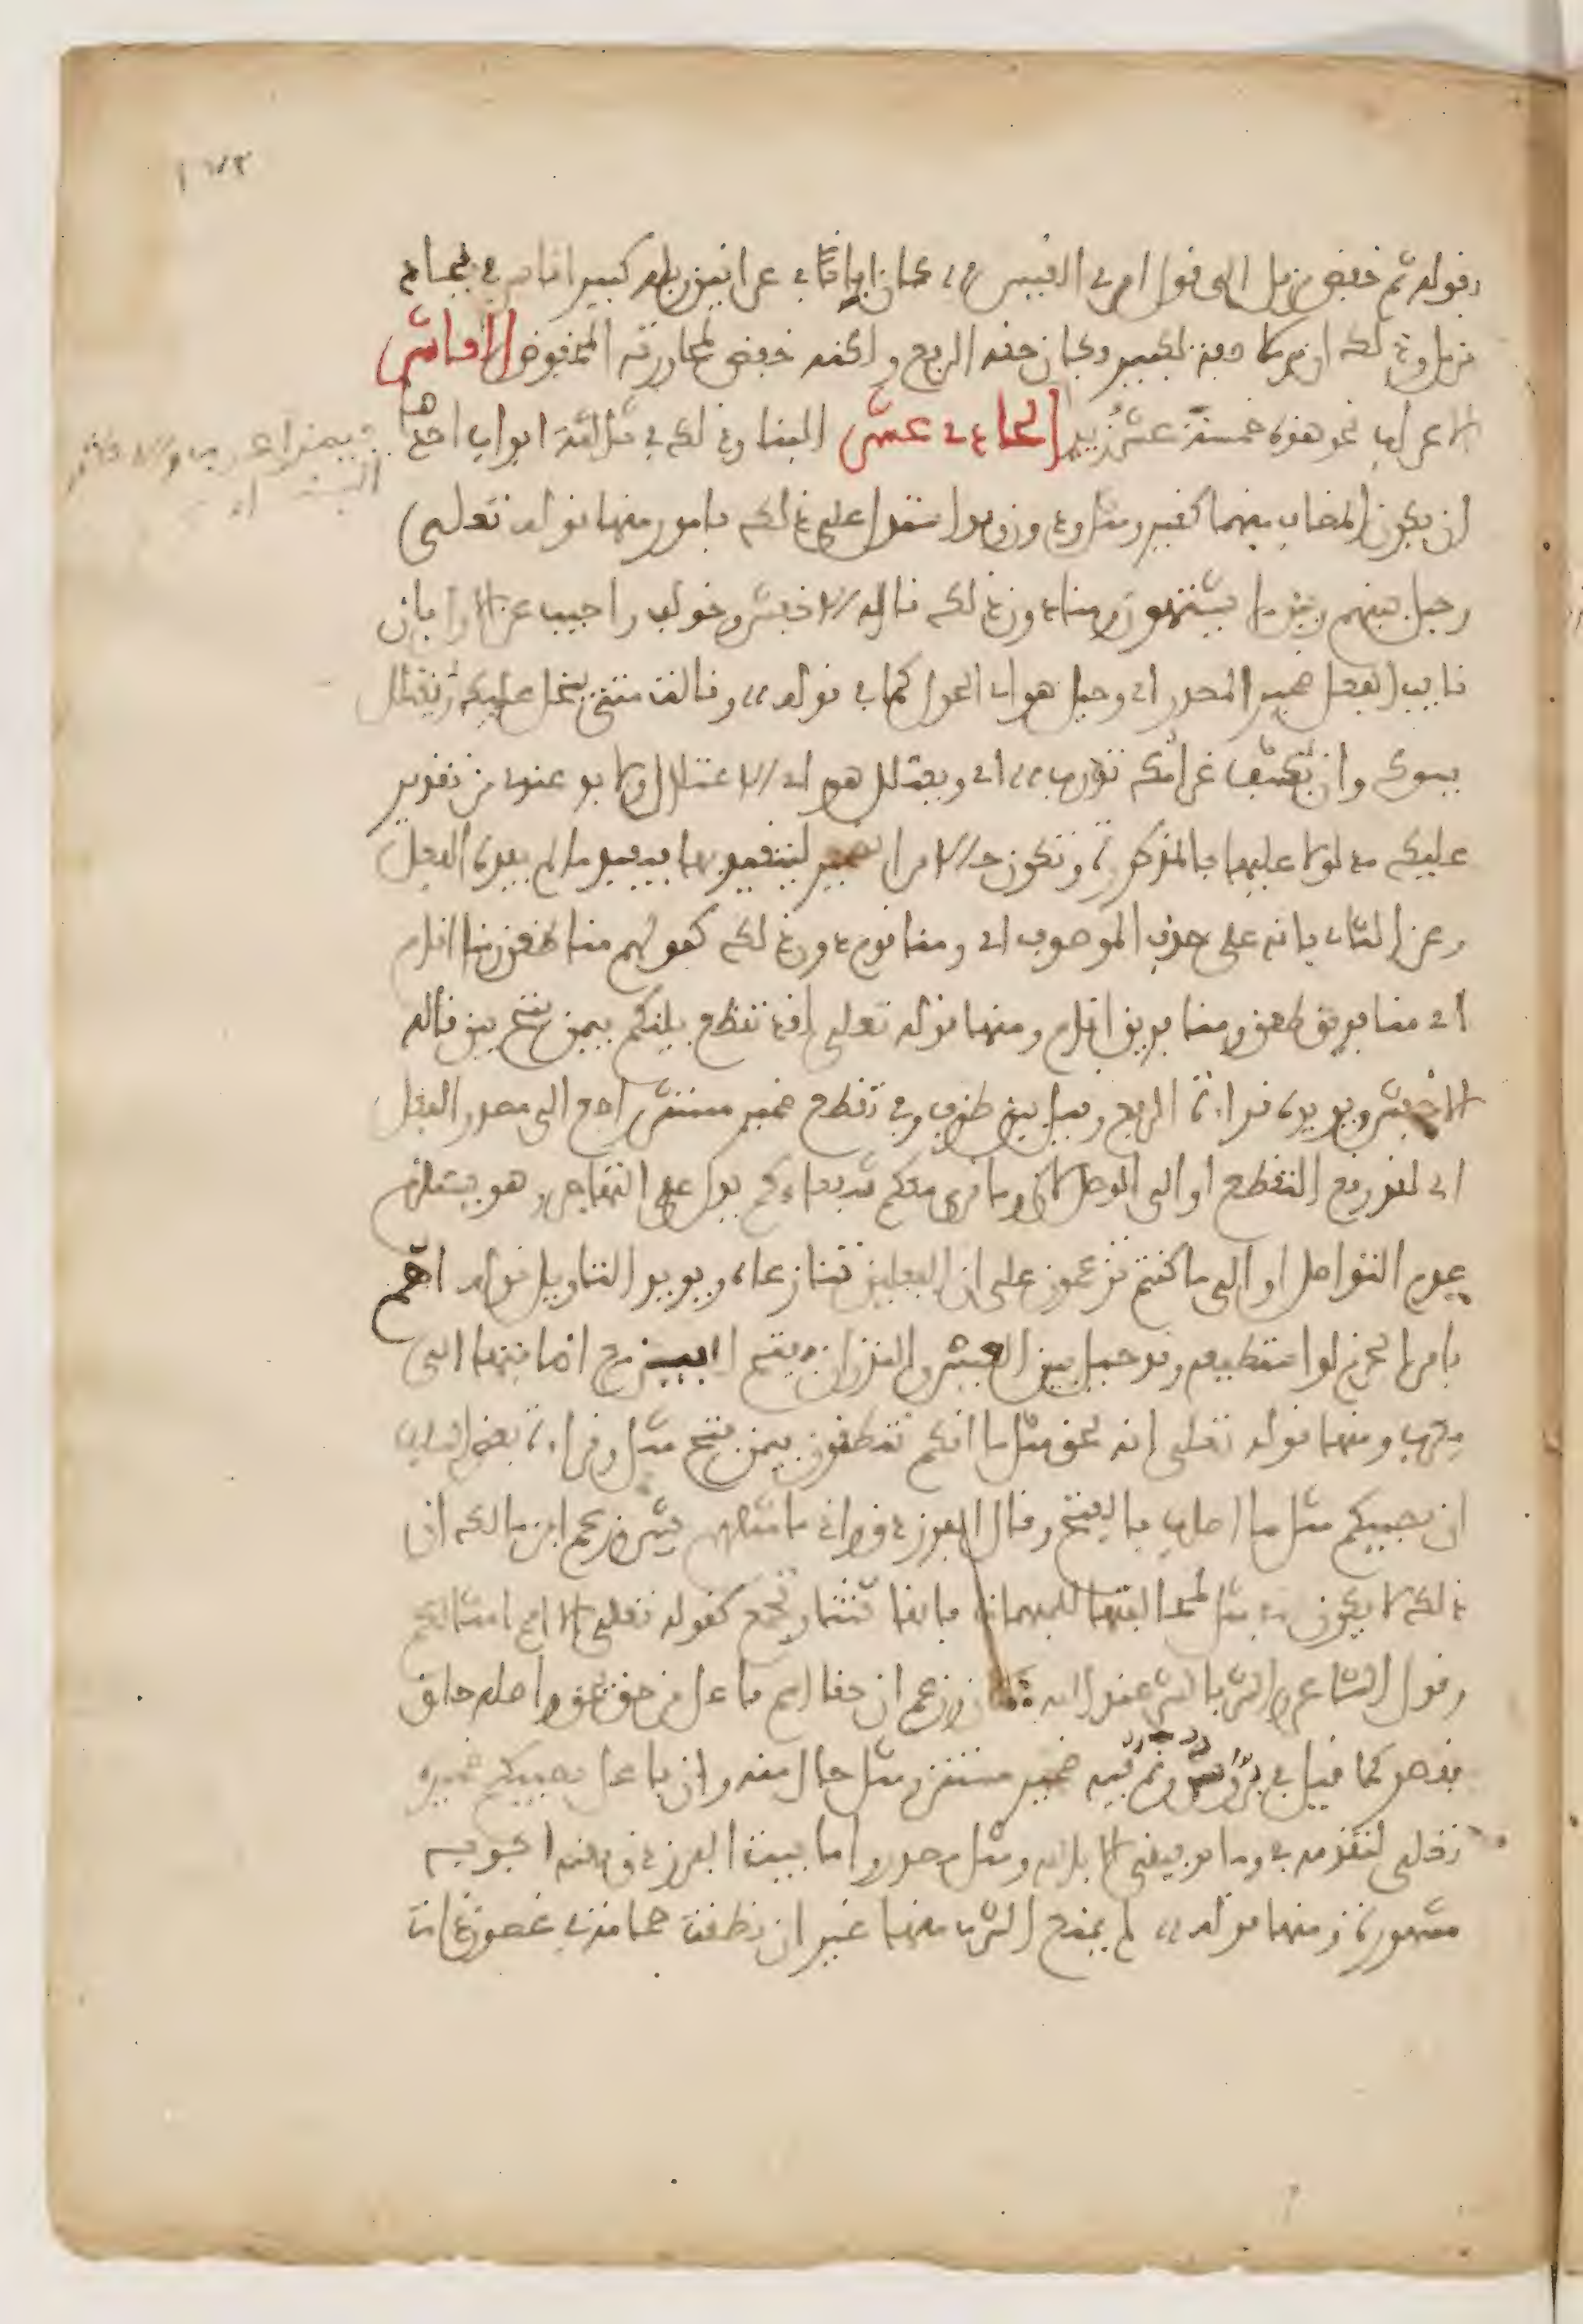 ١٧٣
وقوله ثم خفض مزمل الى قول امرئ القيس ،، كان ابانا في عرانين وبله كبير اناس في بجاد
مزمل وذلك ان مزملا صفة لكبير وكان حقه الرفع ولكنه خفض لمجاورته المخفوض العاشر
الاعراب نحو هذه خمسة عشر زيد الحادي عشر البناء وذلك في ثلاثة ابواب احدها
ان يكون المضاف مبهما كغير ومثل ودون وقد استدل على ذلك بامور منها قوله تعالى
وحيل بينهم وبين ما يشتهون ومنا دون ذلك قاله الاخفش وخولف واجيب عن الاول بان
نايب الفعل ضمير المصدر اي وحيل هو اي الحول كما في قوله ،، وقالت متى يبخل عليك ويعتلل
يسؤك وان يكشف غرامك تدرب ،، اي ويعتلل هو اي الاعتلال ولا بد عندي من تقدير
عليك مدلولا عليها بالمذكورة وتكون حالا من الضمير ليتقيد بها فيفيد ما لم يفده الفعل
وعن الثاني بانه على حذف الموصوف اي ومنا قوم دون ذلك كقولهم منا ظعن ومنا اقام
اي منا فريق ظعن ومنا فريق اقام ومنها قوله تعالى لقد تقطع بينكم فيمن فتح بين قاله
الاخفش ويؤيده قراءة الرفع وقيل بين ظرف وفي تقطع ضمير مستتر راجع الى مصدر الفعل
اي لقد وقع التقطع او الى الوصل لان وما نرى معكم شفعاءكم يدل على التهاجر وهو يستلزم
عدم التواصل او الى ما كنتم تزعمون على ان الفعلين تنازعاه ويؤيد التاويل قوله اهم
بامر الحزم لو استطيعه وقد حيل بين العير والنزوان بفتح بين مع اضافتها الى
معرب ومنها قوله تعالى انه لحق مثل ما انكم تنطقون فيمن فتح مثل وقراءة بعض السلف
ان يصيبكم مثل ما اصاب بالفتح وقال الفرزدق واذ ما مثلهم بشر وزعم ابن مالك ان
ذلك لا يكون في مثل لمخالفتها للمبهمات فانها تثنى وتجمع كقوله تعالى الا امم امثالكم
وقول الشاعر والشر بالشر عند الله مثلان وزعم ان حقا اسم فاعل من حق يحق واصله حاق
فقصر كما قيل في بر وسر ونم ففيه ضمير مستتر ومثل حال منه وان فاعل يصيبكم ضميره
تعالى لتقدمه في وما توفيقي الا بالله ومثل مصدر واما بيت الفرزدق ففيه اجوبة
مشهورة ومنها قوله ،، لم يمنع الشرب منها غير ان نطقت حمامة في غصون ذات